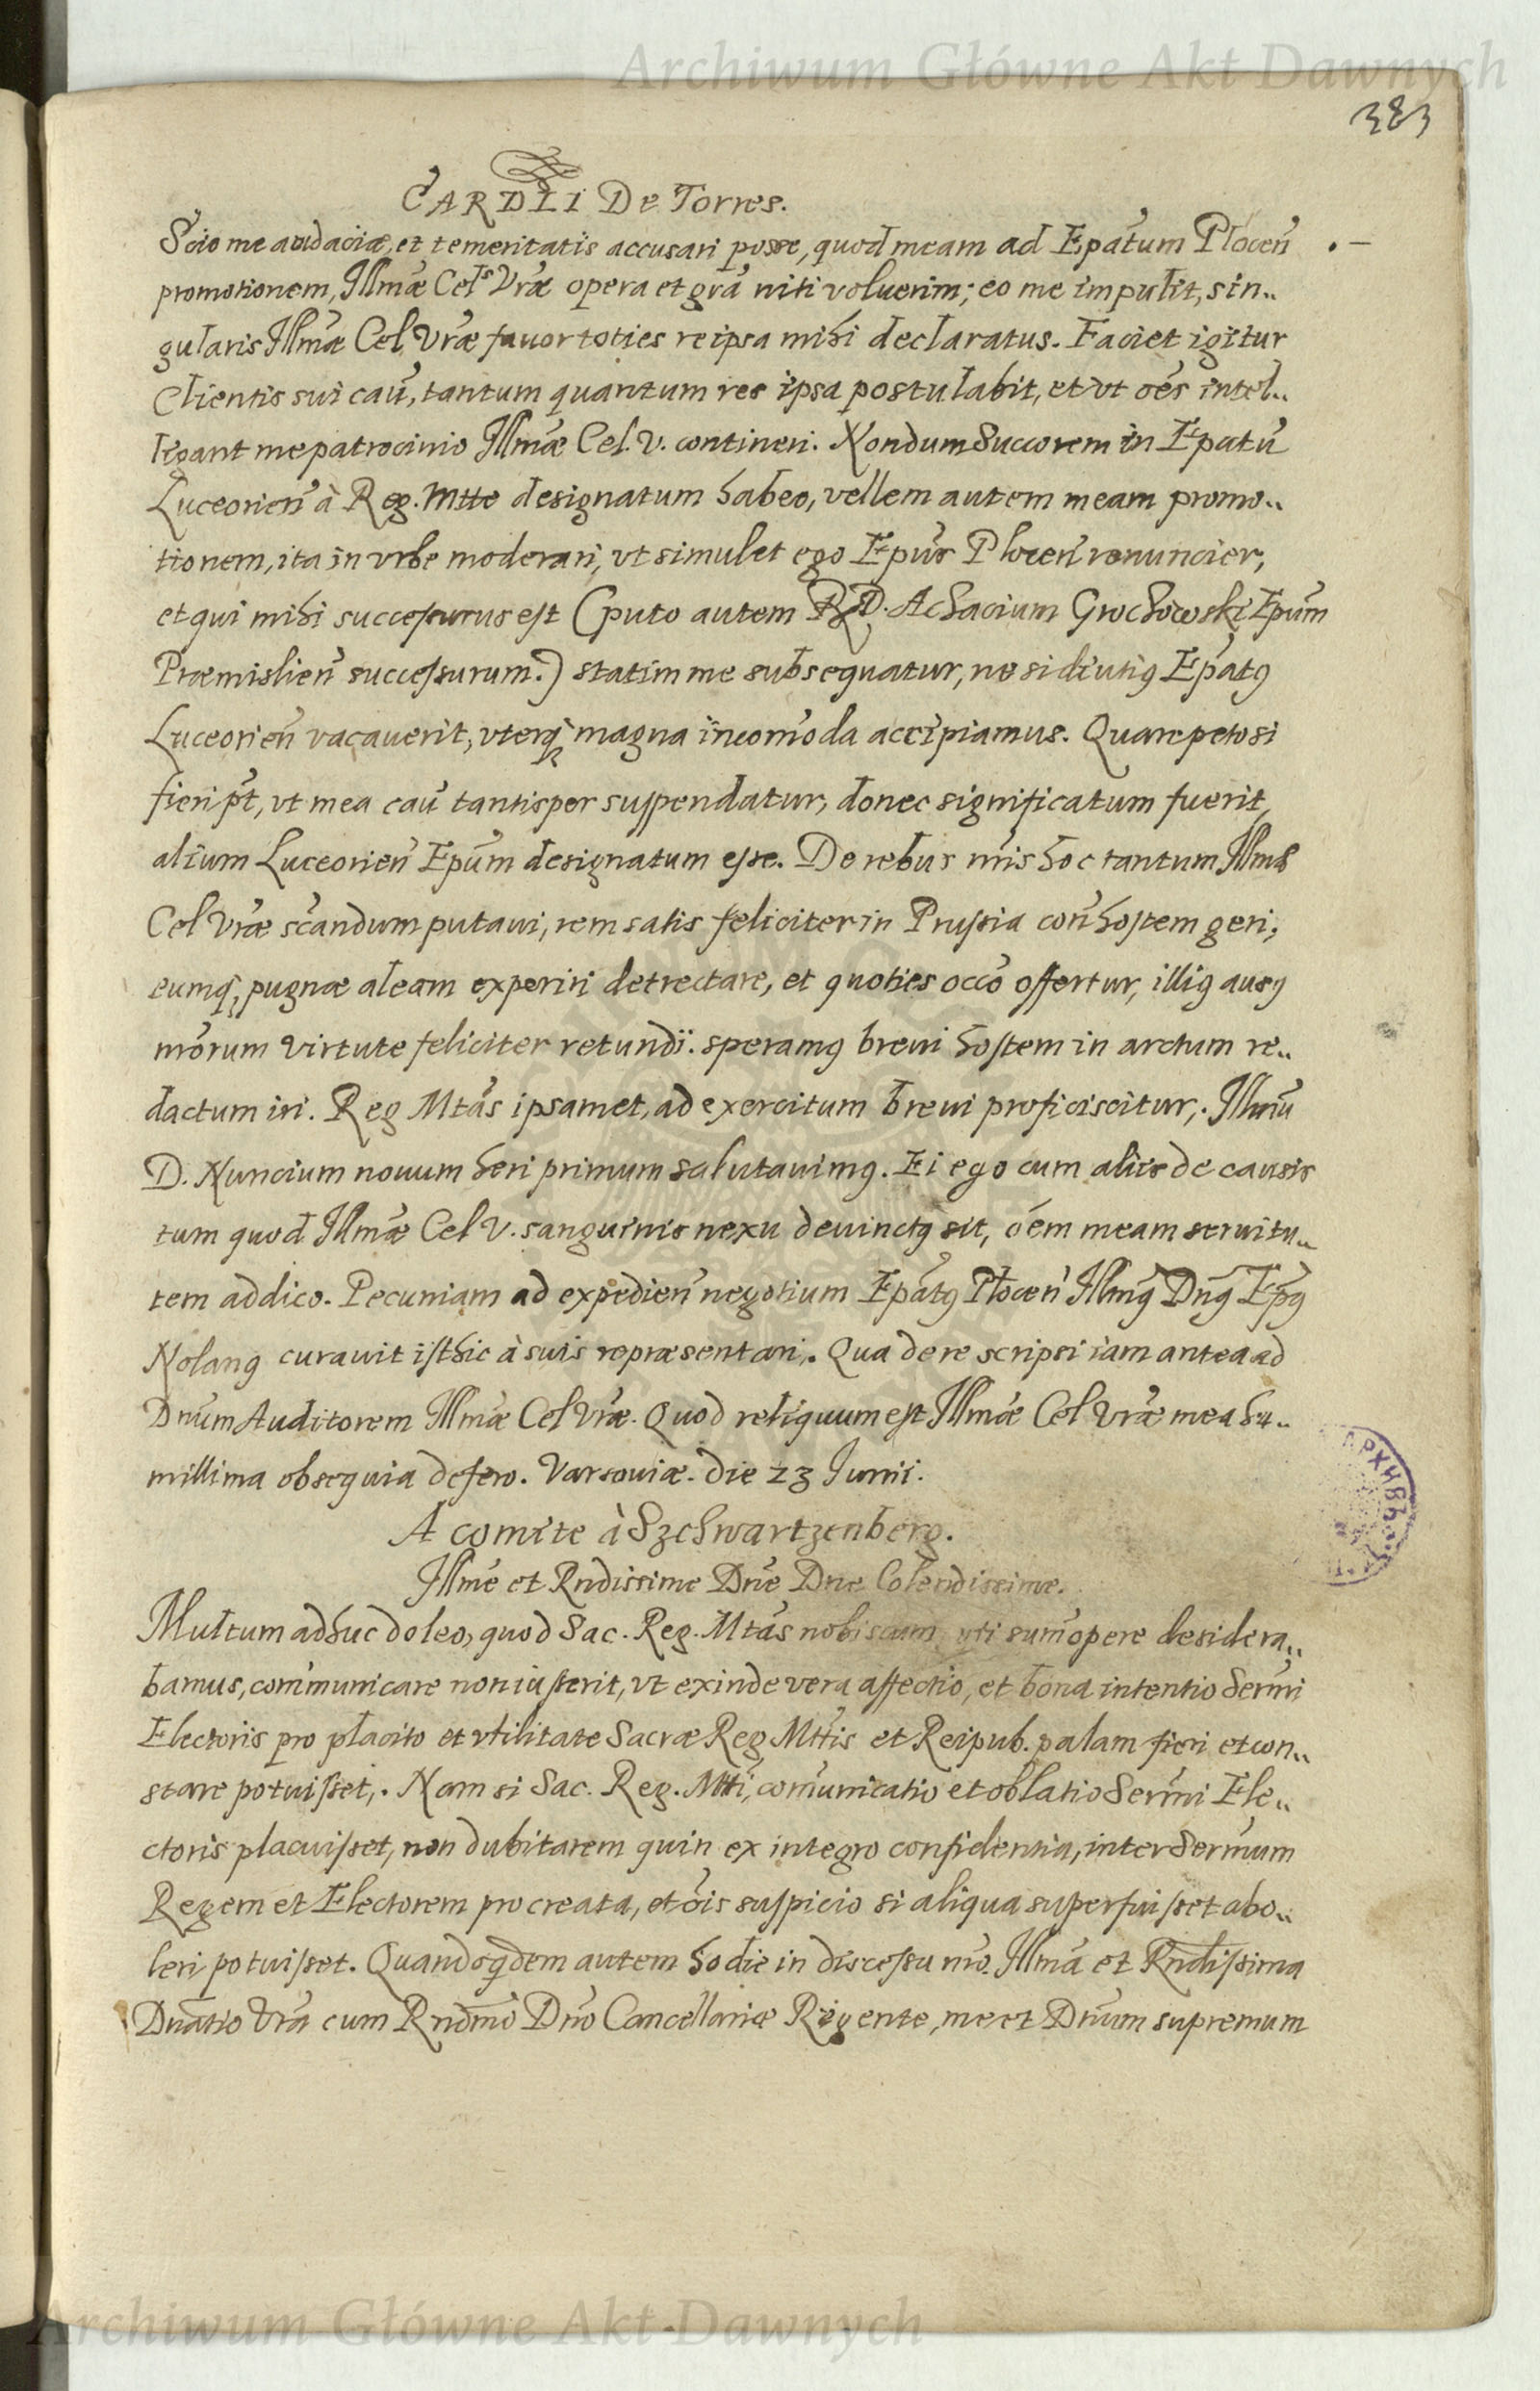 Archiwum Główne Akt Dawnych
383
CARDLI De Torres.
Scio me audaciæ, et temeritatis accusari posse, quod meam ad Epãtum Plocen̄ . –
promotionem, Illmæ Cels Vræ opera et grã niti voluerim; eo me impulit, sin..
gularis Illmæ Cel Vræ fauor toties reipsa mihi declaratus. Faciet igitur
Clientis sui cau͂, tantum quantum res ipsa postulabit, et vt oẽs intel..
ligant me patrocinio Illmæ Cel. V. contineri. Nondum Succorem in Epatũ
Luceorien̄ à Reg. Mtte designatum habeo, vellem autem meam promo..
tionem, ita in vrbe moderari, vt simul et ego Epũs Plocen̄ renuncier,
et qui mihi successurus est (puto autem RD. Achacium Grochowski Epũm
Præmislien̄ successurum.) statim me subsequatur, ne si diutiꝰ Epãtꝰ
Luceorien̄ vacauerit, vterqꝫ magna incom̃oda accipiamus. Quare peto si
fieri pt̃, vt mea cau͂ tantisper suspendatur, donec significatum fuerit,
alium Luceorien̄ Epũm designatum esse. De rebus nr̃is hoc tantum Illmæ
Cel Vræ scãndum putaui, rem satis feliciter in Prussia con̄ hostem geri;
eumqꝫ, pugnæ aleam experiri detrectare, et quoties occõ offertur, illiꝰ ausꝰ
nr̃orum virtute feliciter retundi. speramꝰ breui hostem in arctum re..
dactum iri. Reg Mtãs ipsamet, ad exercitum breui proficiscitur,. Illmũ
D. Nuncium nouum heri primum salutauimꝰ. Ei ego cum aliis de causis
tum quod Illmæ Cel V. sanguinis nexu deuinctꝰ sit, õem meam seruitu..
tem addico. Pecuniam ad expedien̄ negotium Epãtꝰ Plocen̄ Illmꝰ Dnꝰ Epꝰ
Nolanꝰ curauit isthic à suis repræsentari,. Qua de re scripsi iam antea ad
Dnũm Auditorem Illmæ Cel Vræ. Quod reliquum est Illmæ Cel Vræ mea hu..
millima obsequia defero. Varsouiæ. die 23 Junii.
A comite à Szchwartzenberg.
Illme et Rndissime Dne Dne Colendissime.
Multum adhuc doleo, quod Sac. Reg. Mtãs nobiscum uti sum̃opere desidera..
bamus, com̃unicare non iusserit, vt exinde vera affectio, et bona intentio Serm̃i
Electoris pro placito et vtilitate Sacræ Reg Mttis et Reipub. palam fieri et con..
stare potuisset,. Nam si Sac. Reg. Mtti, com̃unicatio et oblatio Serm̃i Ele..
ctoris placuisset, non dubitarem quin ex integro confidentia, inter Serm̃um
Regem et Electorem procreata, et õis suspicio si aliqua superfuisset abo..
leri potuisset. Quandoqdem autem hodie in discessu nr̃o. Illmã et Rndissima
Dnatio Vrã cum Rndmõ Dnõ Cancellariæ Rigente, me et Dnũm supremum
АРХИВЪ
Archiwum Główne Akt Dawnych